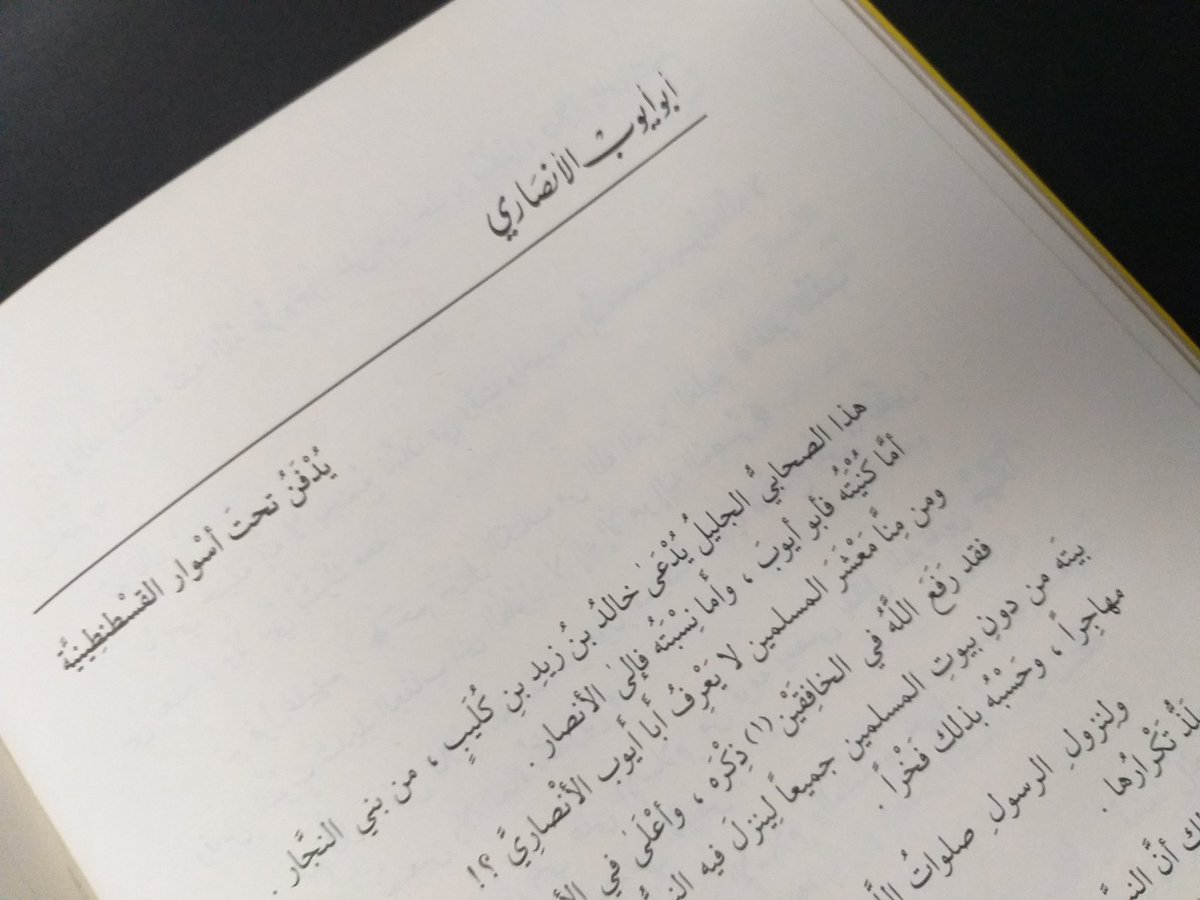 أبو أيوبْ الأنْصَاري
يُدْفَنُ تحتَ أسْوار القسْطنْطِينيَّة
هذا الصحابيُّ الجليلُ يُدْعَىٰ خالدُ بنُ زيدِ بنِ كُلَيبٍ ، من بني النجَّار .
أمَّا كُنْيَتُه فأبو أيوبَ ، وأما نِسْبَتُه فإلىٰ الأنصار .
ومن مِنَّا مَعْشَرَ المسلمين لا يَعْرِفُ أبا أيوب الأنْصاريَّ ؟!
فقد رَفَعَ اللَّهُ في الخافِقَيْن (١) ذِكْرَه ، وأعْلَىٰ في
بيتَه من دونِ بيوتِ المسلمين جميعاً لِينزلَ فيه
مهاجِراً ، وحَسْبُه بذلك فَخْراً .
ولِنزولِ الرسولِ صلواتُ
تَكْرَارُها .
أنَّ